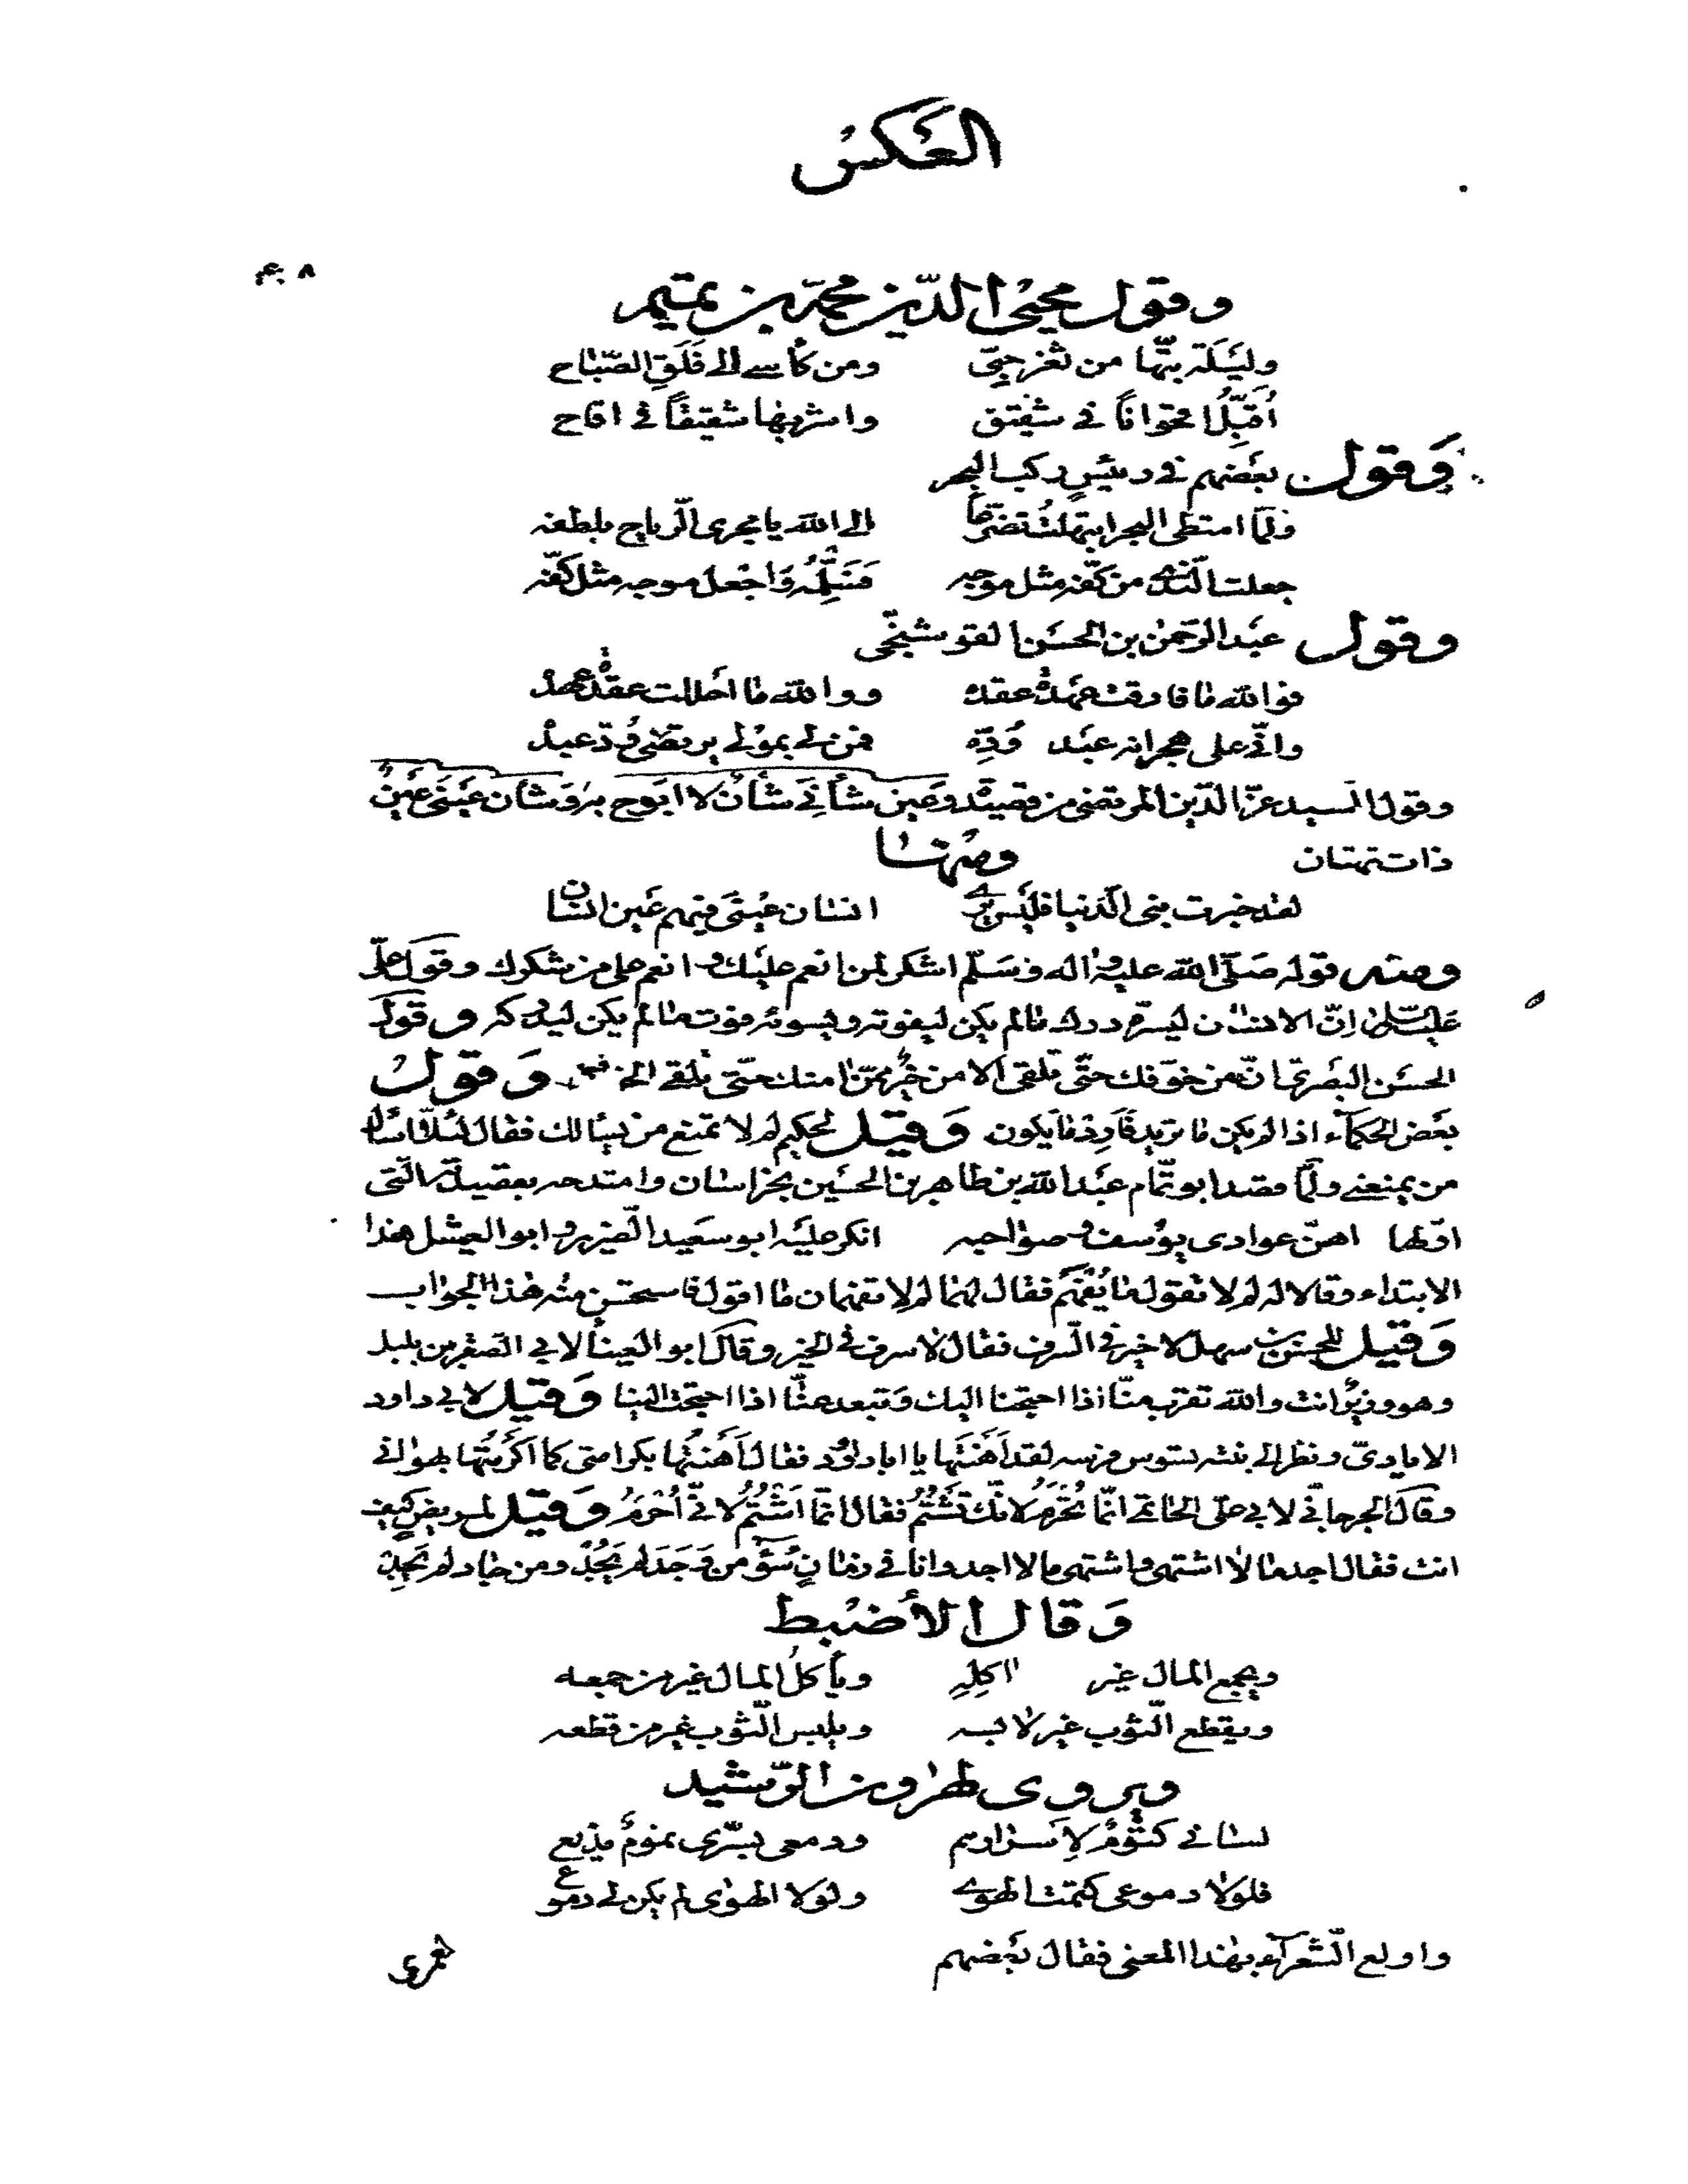 العَكسُ
٤٠٨
وقول محيى الدّين محمّد بن تميم
وليَلة بتّها من ثغر حِبّى ومن كأسے الى فَلَقِ الصّباح
أُقَبّلُ اقحواناً فى شقيق واشربها شقيقاً فى اقاح
وَقول بعَضهم فى رئيسٍ ركب البحر
ولمّا امتطى البحر ابتهلتُ تضرّعاً الى الله يا مجرى الرّياح بلطفه
جعلت النّدى من كفّه مثل موجه فَسَلِّمْهُ وَاجْعل موجه مثل كفّه
وقول عبَد الرّحمٰن بن الحسَن القوشنجّى
فوالله ما فارقت عهدهُ عقده ووالله ما احَللت عقد عهده
وانّى على هجرانه عبَد وُدّه فمن لى بموْلى يرتضى وُدّ عبده
وقول السيد عزّ الدّين المرتضى من قصيدة وعَين شأنى شأن لا ابَوح به وَشأن عيَنى عَين
ذات تهتان ومنها
لقد خبرت بنى الدّنيا فليَس يرى انسان عيْنى فيهم عَين انسان
ومنه قوله صَلّى الله عليه واله وَسَلّم اشكر لمن انعم عليك و انعم على من شكرك وقول علىّ
عليه السّلم اِنّ الانسان ليسرّه درك ما لم يكن ليفوته ويسوئه فوت ما لم يكن ليدركه وقول
الحسَن البصَرى انّ من خوّفك حتّى تلقى الامن خير ممّن امنك حتّى تلقى الخوف وَقول
بعَض الحكمآء اذا لم يكن ما تريد فَارِدْ ما يكون وَقيل لحكيم لم لا تمنع من يسَالك فقال لئلّا اسأل
من يمنعنى ولَمّا قصد ابو تمّام عبَد الله بن طاهر بن الحسَين بخراسان وامتدحه بقصيدته الّتى
اوّلها اهنّ عوادى يوُسف وصواحبه انكر عليَه ابو سعَيد الضّرير و ابو العميثل هذا
الابتداء وقالا له لم لا تقول ما يُفْهَم فقال لهما لم لا تفهمان ما اقول فاستحسن منه هذا الجواب
وَقيل للحسن بن سهل لا خير فى السّرف فقال لا سرف فى الخير وقال ابو العينا لابى الصّقر بن بلبل
وهو وزير انت والله تقرب منّا اذا احتجنا اليك وَتبعد عنّا اذا احتجت الينا وَقيل لابى داود
الايادىّ ونظر الى بنته تسوس فرسه لقد اَهَنْتَها يا ابا داود فقال اَهَنْتُها بكرامتى كما اكْرَمْتُها بهوانى
وقال الجرجانّى لابى علىّ الحاتمى انّما تُحْرَمُ لانّك تَشْتُم فقال انّما اَشْتُمُ لانّى اُحْرَمُ وَقيل لمريض كيف
انت فقال اجد ما لا اشتهى واشتهى ما لا اجد وانا فى زمانِ سُوْءٍ من وَجَدَ لم يَجُدْ ومن جاد لم يَجِدْ
وَقال الأضبط
ويجمع المال غير آكِلِهِ ويأكلُ المال غير من جمعه
ويقطع الثّوب غير لابسه ويلبس الثّوب غير من قطعه
ويروى لهٰرون الرّشيد
لسانى كتُومٌ لِاَسْرارهم ودمعى بسّرى نمومٌ مذيع
فلولا دموعى كتمت الهوى ولولا الهوٰى لم يكن لى دموع
واولع الشّعرآء بهٰذا المعنى فقال بعَضهم